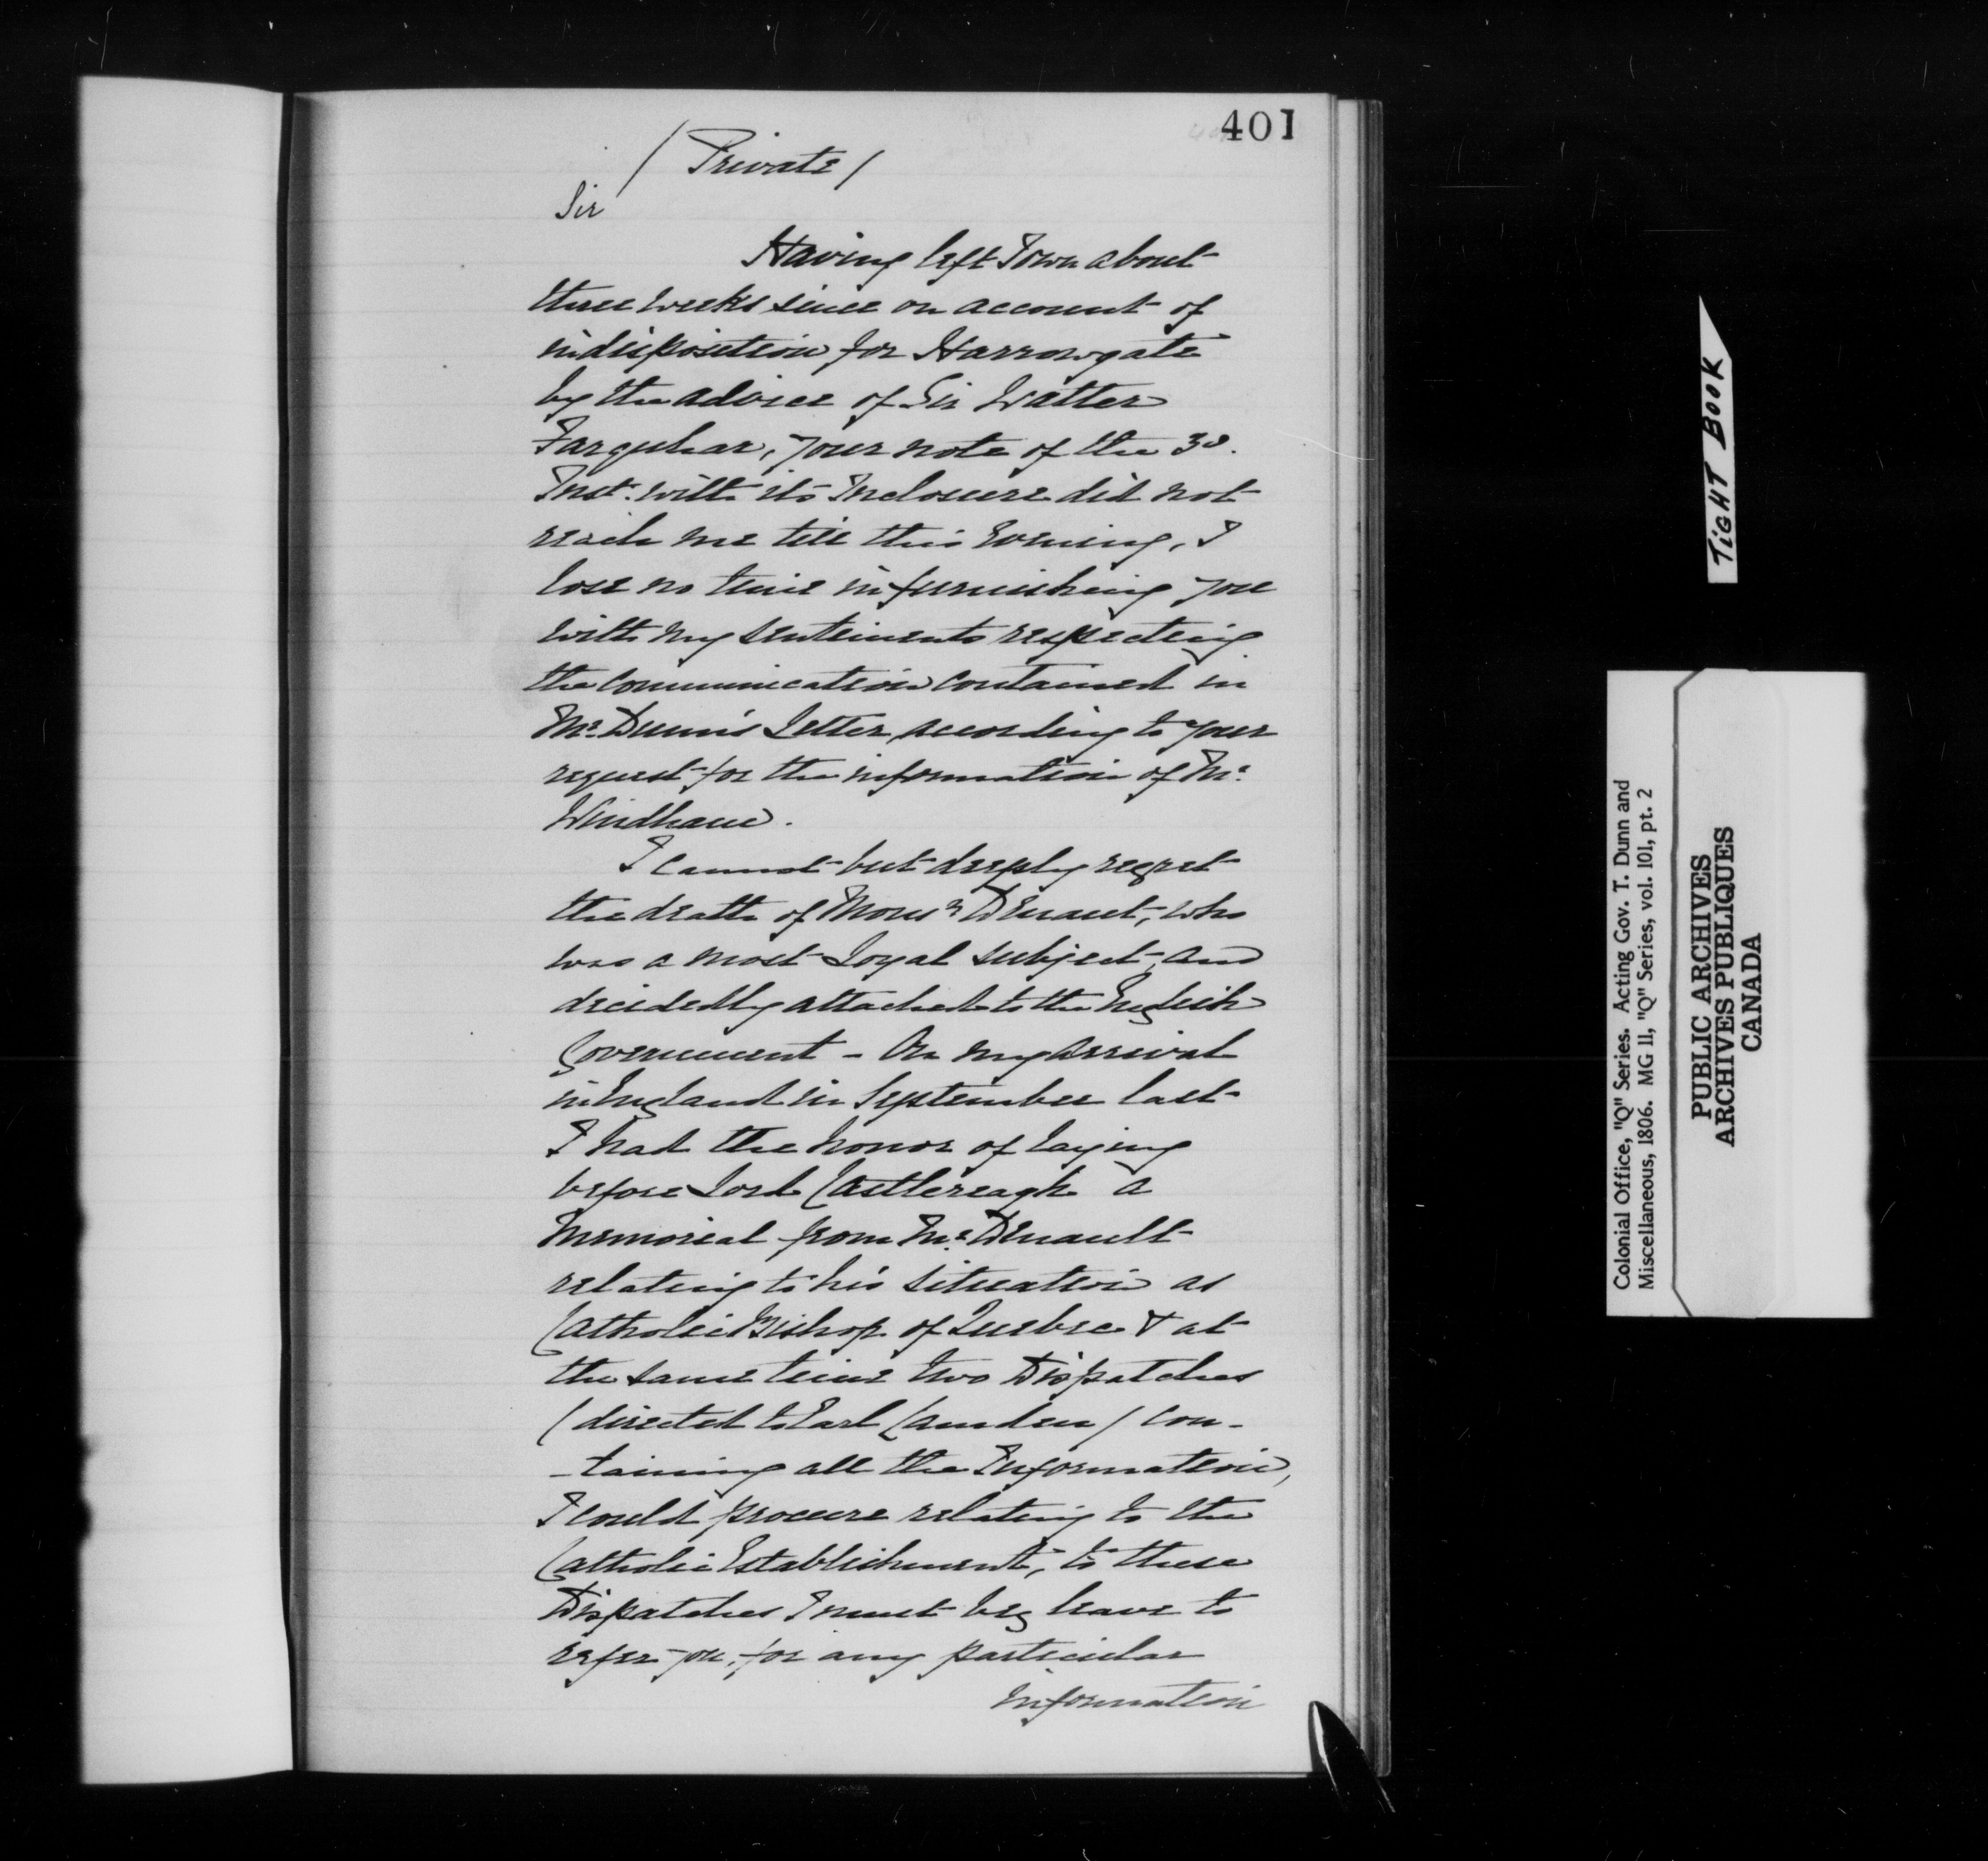 401
( Private )
Sir
Having left Town about
three weeks since on account of
indisposition for Harrowgate
by the advice of Sir Walter
Farquhar, your note of the 3d.
Inst. with its Inclosure did not
reach me till this Evening, I
lose no time in furnishing you
with my sentiments respecting
the communication contained in
Mr. Dunn's Letter, according to your
request for the information of Mr.
Windham.
I cannot but deeply regret
the death of Monsr. Denaut, who
was a most Loyal subject, and
decidedly attached to the English
Government - On my arrival
in England in September last
I had the honor of laying
before Lord Castlereagh a
Memorial from Mr. Denault
relating to his situation as
Catholic Bishop of Quebec & at
the same time two Dispatches
( directed to Earl Camden ) con-
-taining all the Information,
I could procure relating to the
Catholic Establishment, to these
Dispatches I must beg leave to
refer you, for any particular
information
TIGHT BOOK
Colonial Office, "Q" Series. Acting Gov. T. Dunn and
Miscellaneous, 1806. MG 11, "Q" Series, vol. 101, pt. 2
PUBLIC ARCHIVES
ARCHIVES PUBLIQUES
CANADA